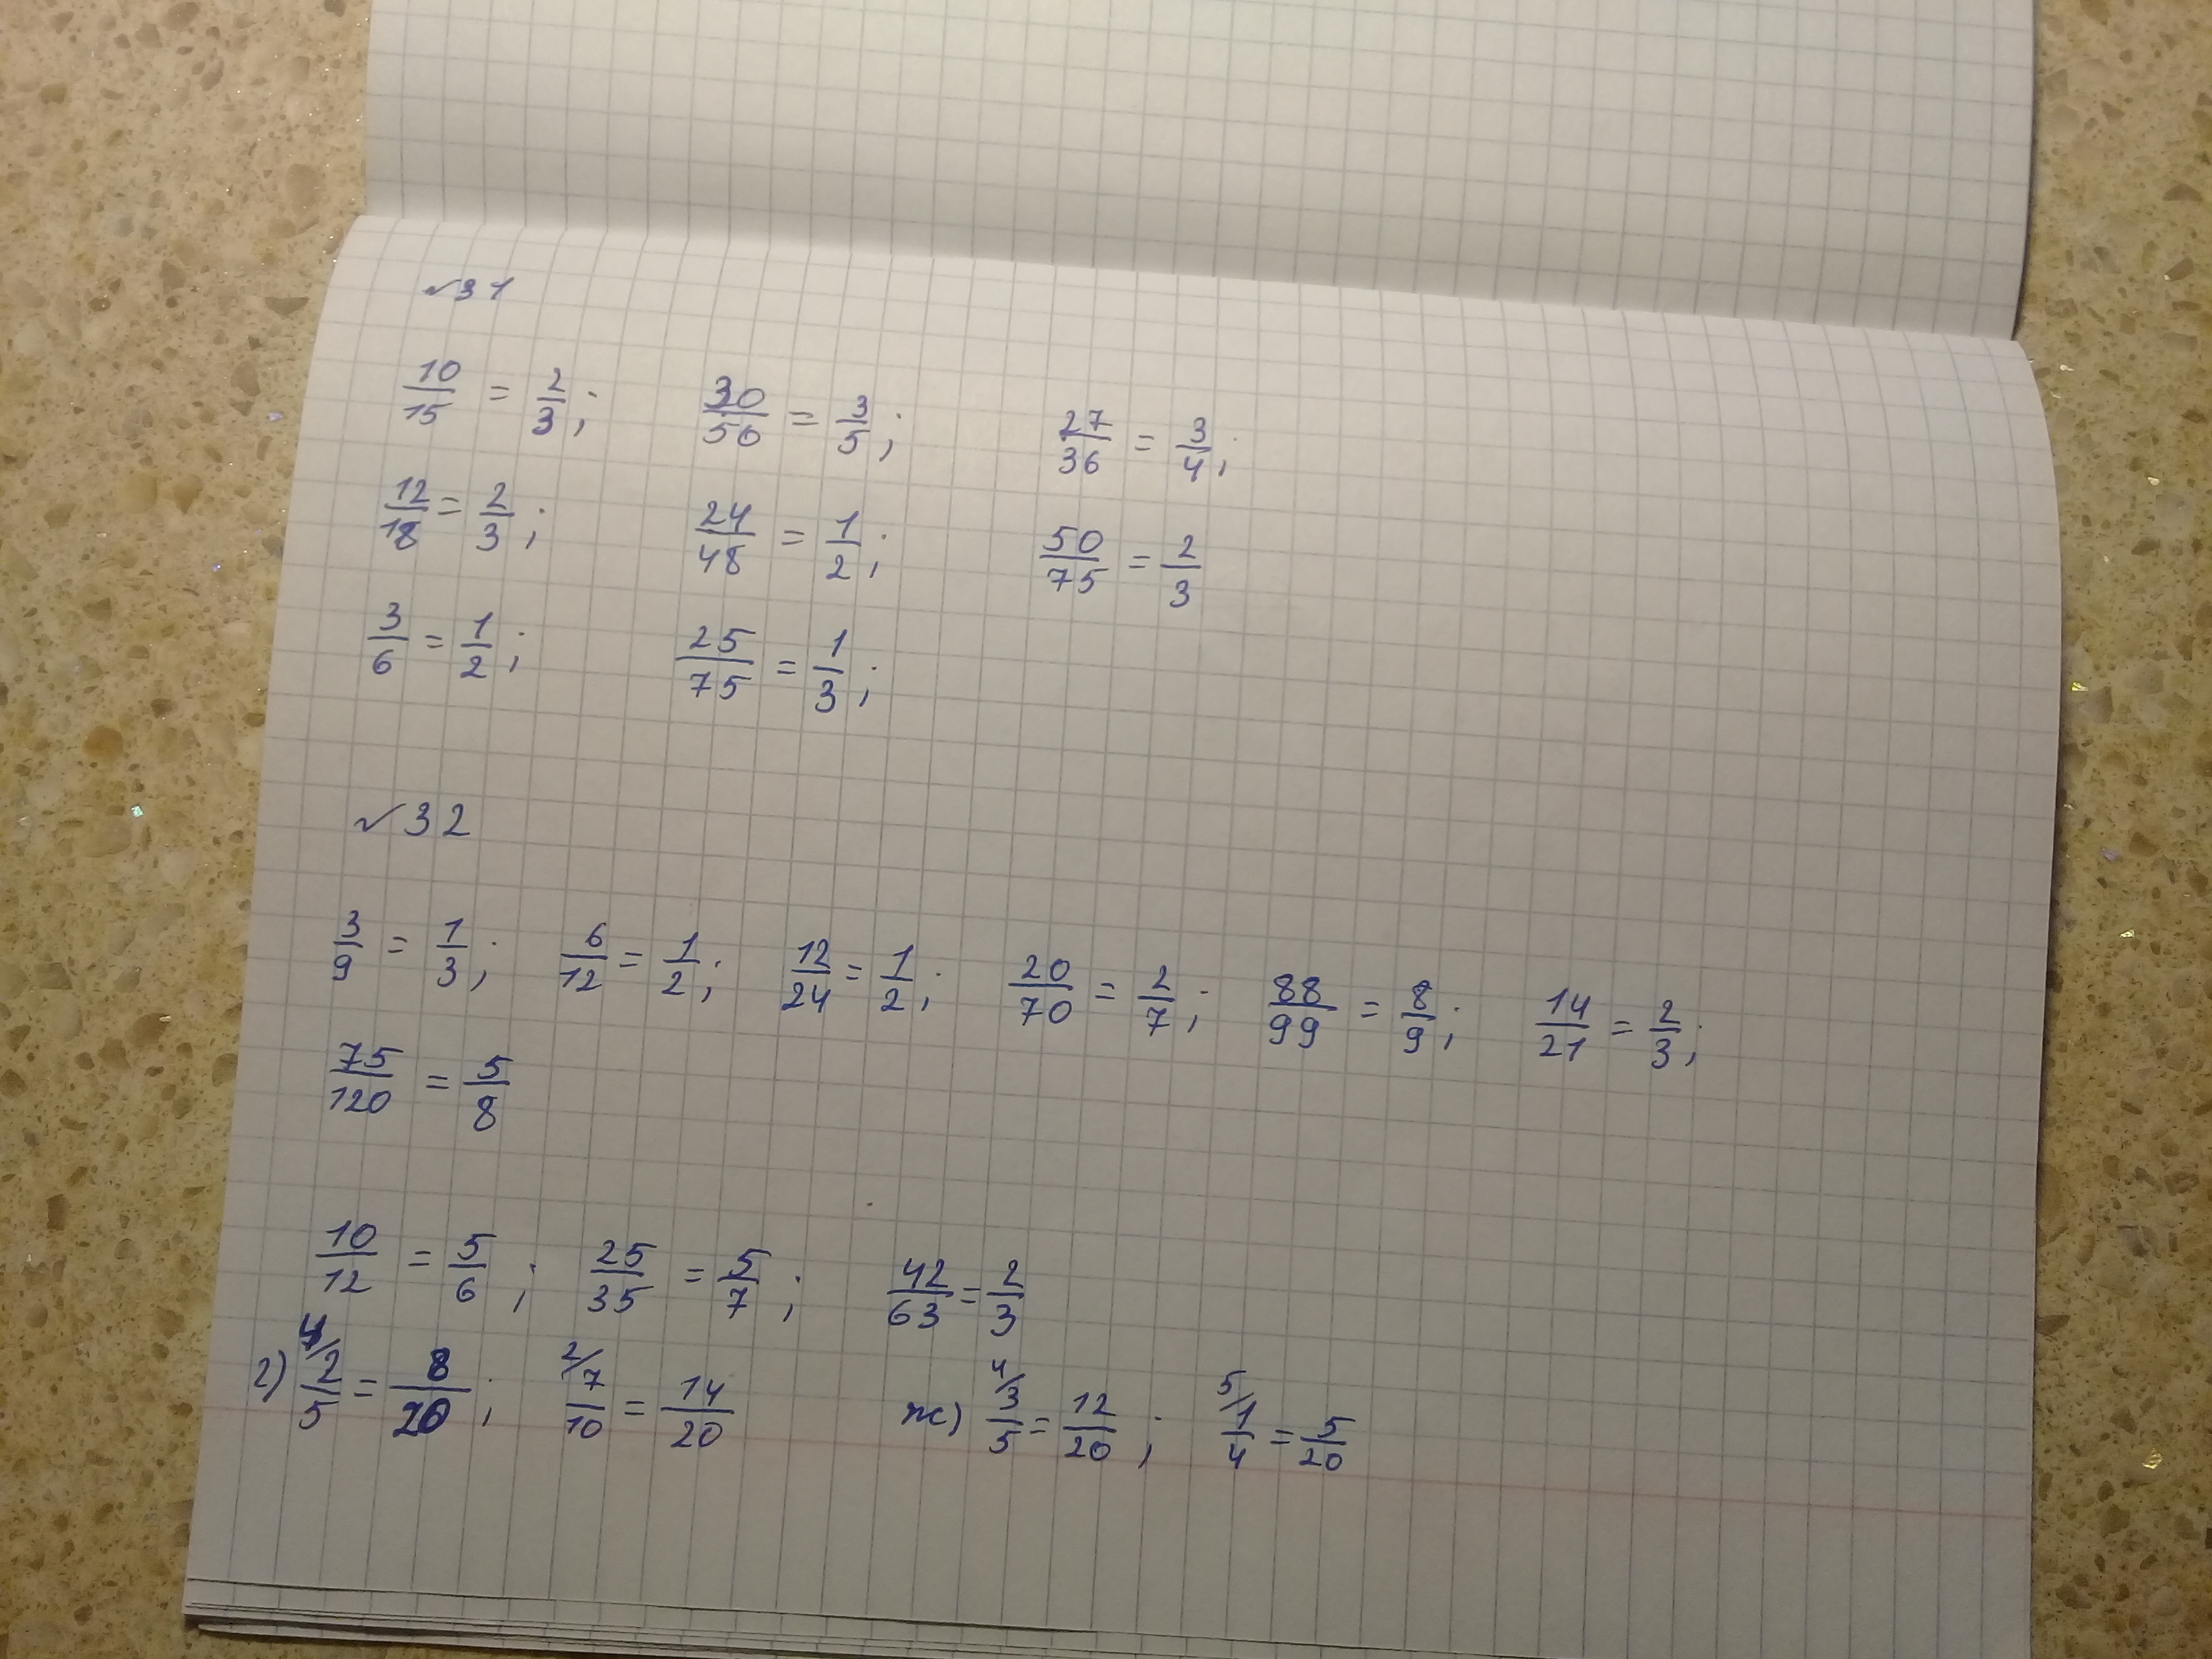 √31
10/15 = 2/3; 30/50 = 3/5; 27/36 = 3/4;
12/18 = 2/3; 24/48 = 1/2; 50/75 = 2/3
3/6 = 1/2; 25/75 = 1/3;
√32
3/9 = 1/3; 6/12 = 1/2; 12/24 = 1/2; 20/70 = 2/7; 88/99 = 8/9; 14/21 = 2/3;
75/120 = 5/8
10/12 = 5/6; 25/35 = 5/7; 42/63 = 2/3
г) 4/ 2/5 = 8/20; 2/ 7/10 = 14/20 ж) 4/ 3/5 = 12/20; 5/ 1/4 = 5/20